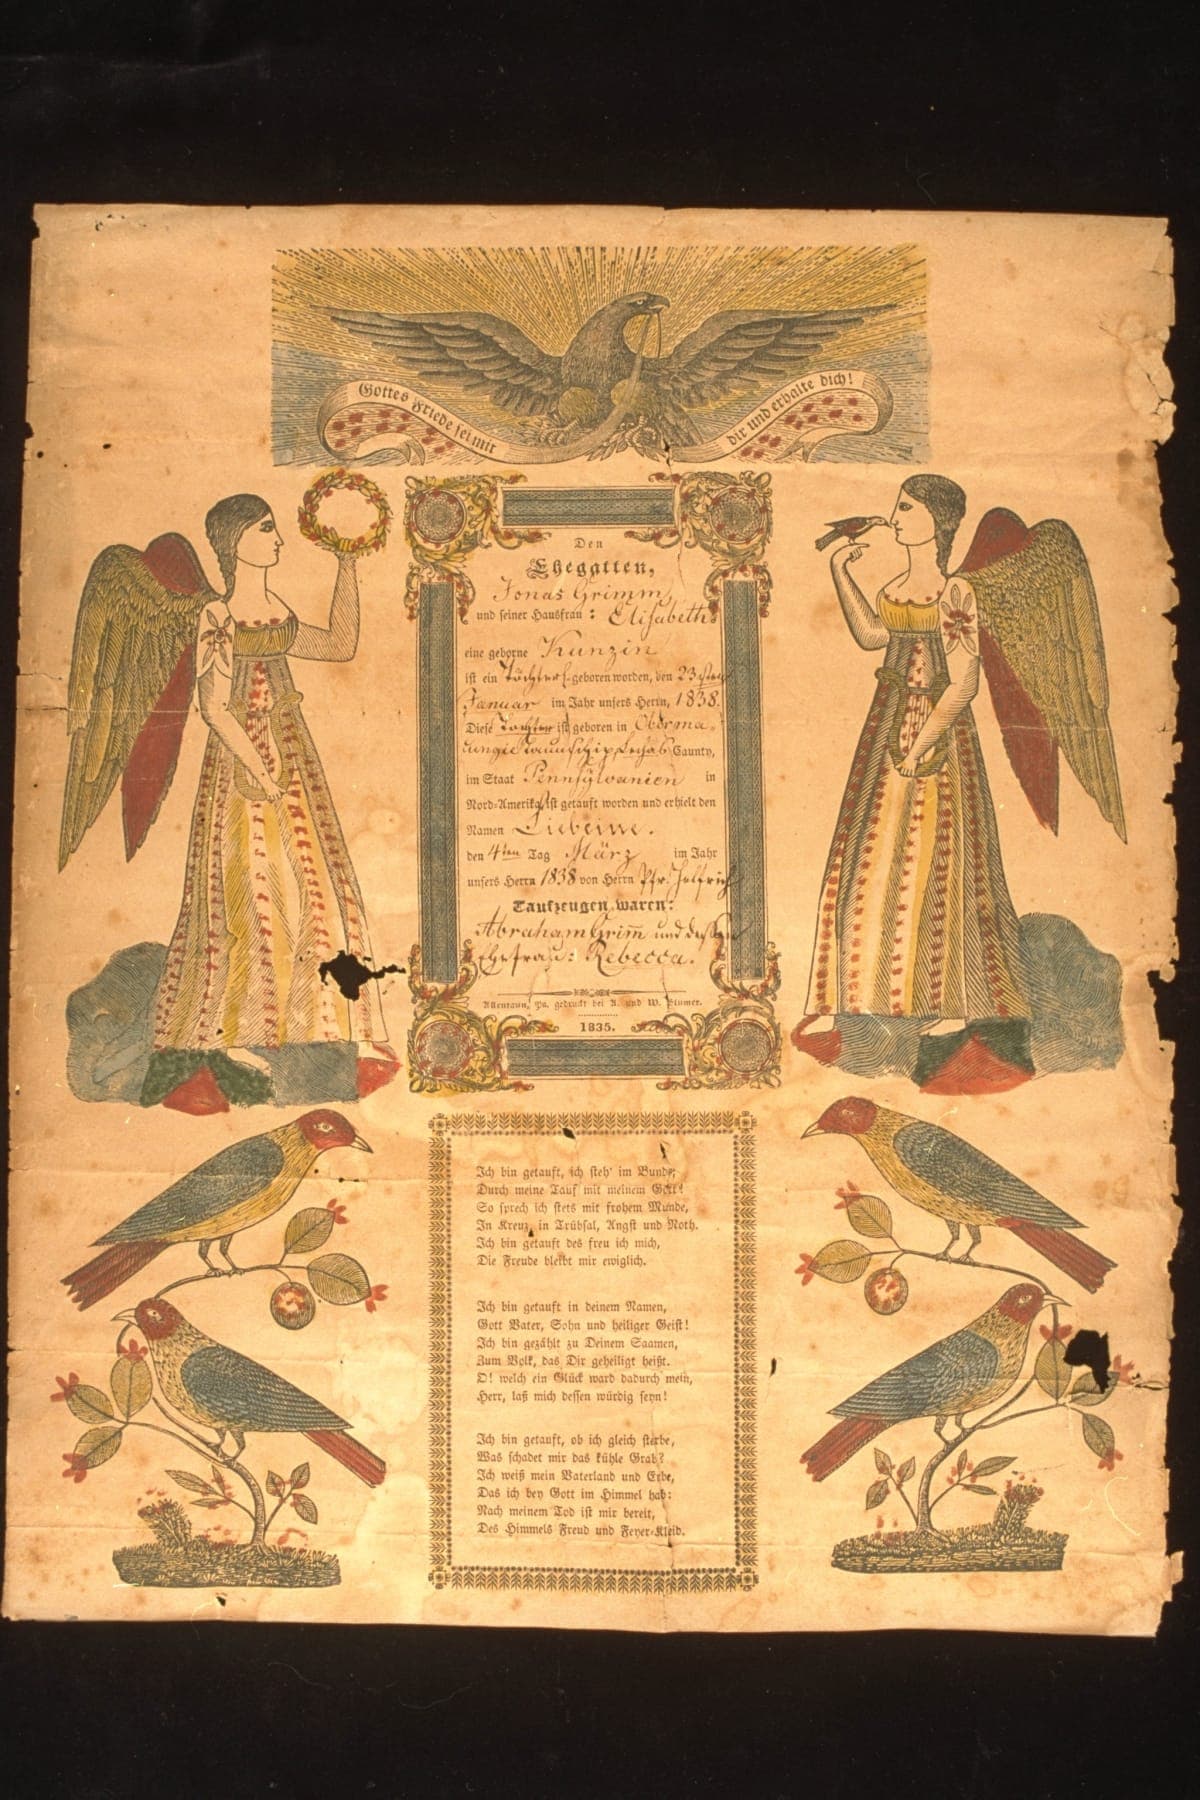 Gottes Friede sei mit
dir und erhalte dich!
Den
Ehegatten,
Jonas Grimm,
und seiner Hausfrau : Elisabeth
eine geborne Kunzin
ist ein Töchterl. geboren worden, den 23sten
Januar im Jahr unsers Herrn, 1838.
Diese Tochter ist geboren in Oberma-
cungie Taunschip Lechas Caunty,
im Staat Pennsylvanien in
Nord-Amerika, ist getauft worden und erhielt den
Namen
den 4ten Tag März im Jahr
unsers Herrn 1838 von Herrn Pfr. Helfrich
Taufzeugen waren:
Abraham Grim̅ und dessen
Ehefrau: Rebecca.
Allentaun, Pa. gedruckt bei A. und W. Blumer.
1835.
Ich bin getauft, ich steh' im Bunde;
Durch meine Tauf mit meinem Gott!
So sprech ich stets mit frohem Munde,
In Kreuz, in Trübsal, Angst und Noth.
Ich bin getauft des freu ich mich,
Die Freude bleibt mir ewiglich.
Ich bin getauft in deinem Namen,
Gott Vater, Sohn und heiliger Geist!
Ich bin gezählt zu Deinem Saamen,
Zum Volk, das Dir geheiligt heißt.
O! welch ein Glück ward dadurch mein,
Herr, laß mich dessen würdig seyn!
Ich bin getauft, ob ich gleich sterbe,
Was schadet mir das kühle Grab?
Ich weiß mein Vaterland und Erbe,
Das ich bey Gott im Himmel hab:
Nach meinem Tod ist mir bereit,
Des Himmels Freud und Feyer-Kleid.